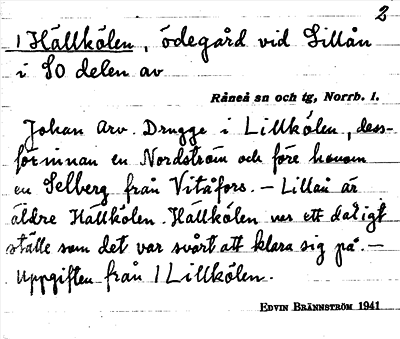 2
1 Hällkölen, ödegård vid Lillån
i SO delen av
Råneå sn och tg, Norrb. l.
Johan Arv. Drugge i Lillkölen, dess-
förinnan en Nordström och före honom
en Selberg från Vitåfors. – Lillån är
äldre Hällkölen. Hällkölen var ett dåligt
ställe som det var svårt att klara sig på. –
Uppgiften från 1 Lillkölen.
EDVIN BRÄNNSTRÖM 1941